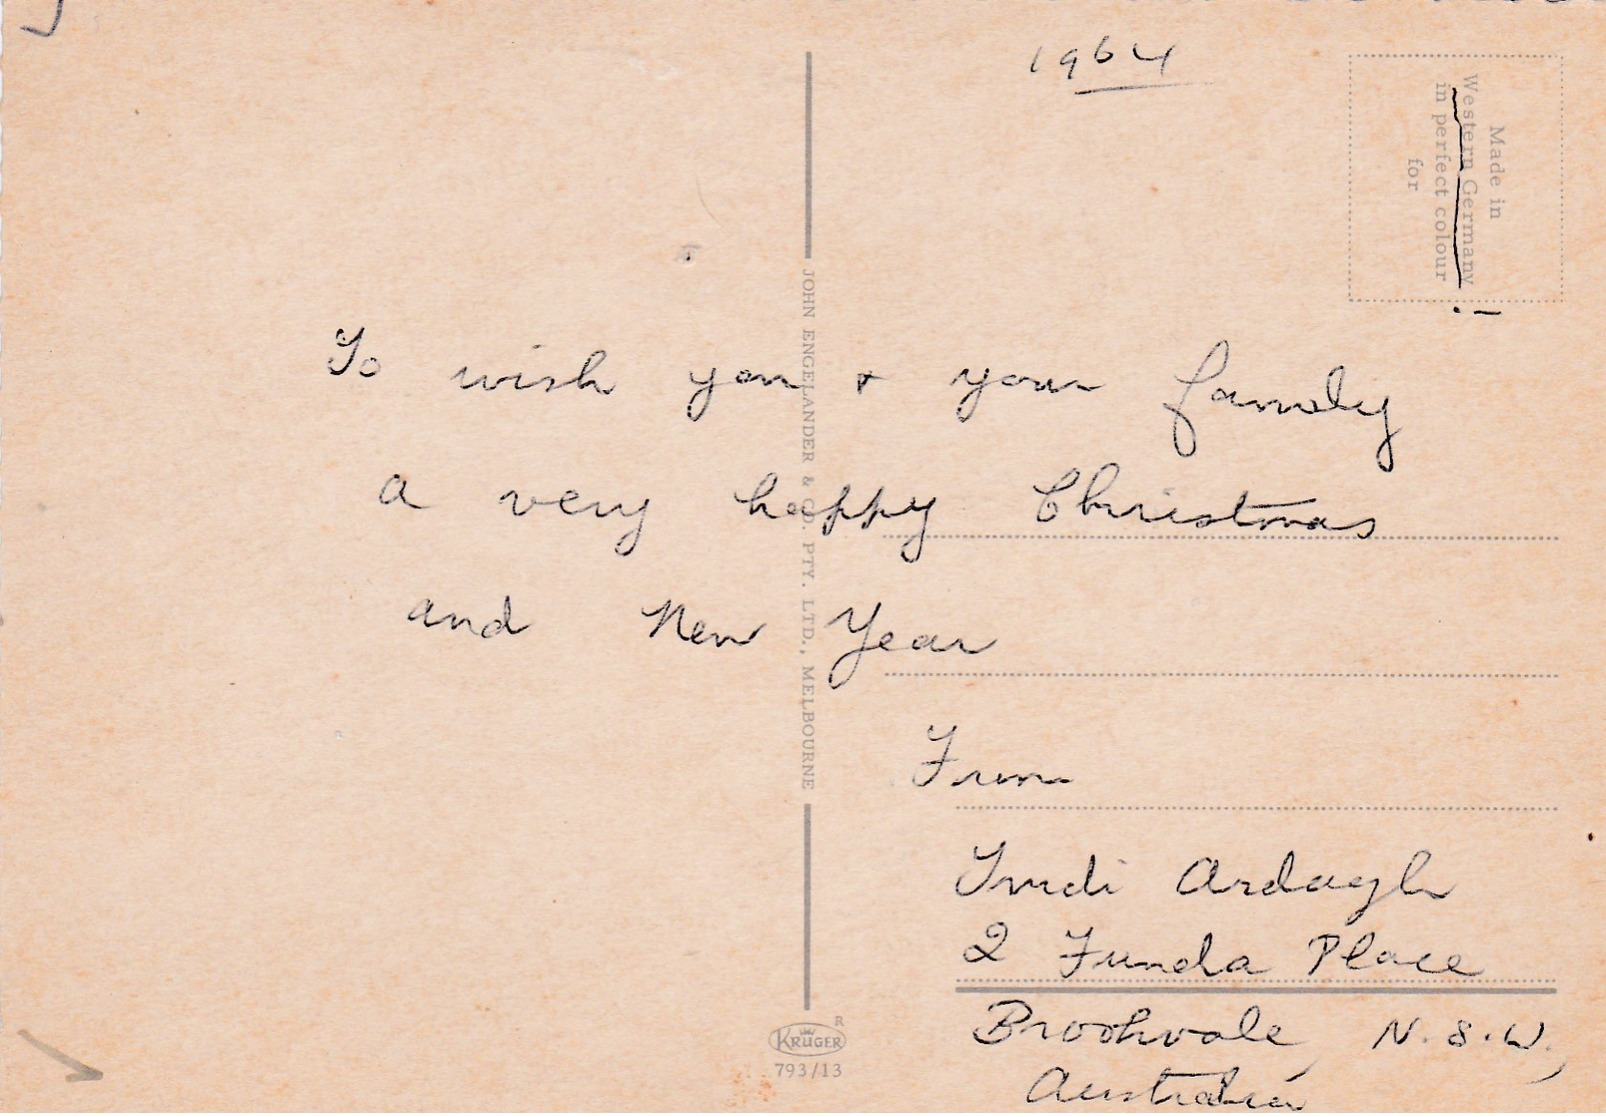 1964
Made in
Western Germany
in perfect colour
for
JOHN ENGELANDER & CO. PTY. LTD., MELBOURNE
To wish you + your family
a very happy Christmas
and New Year
From
Trudi Ardagh
2 Funda Place
Brookvale, N.S.W.,
Australia
R
KRÜGER
793/13